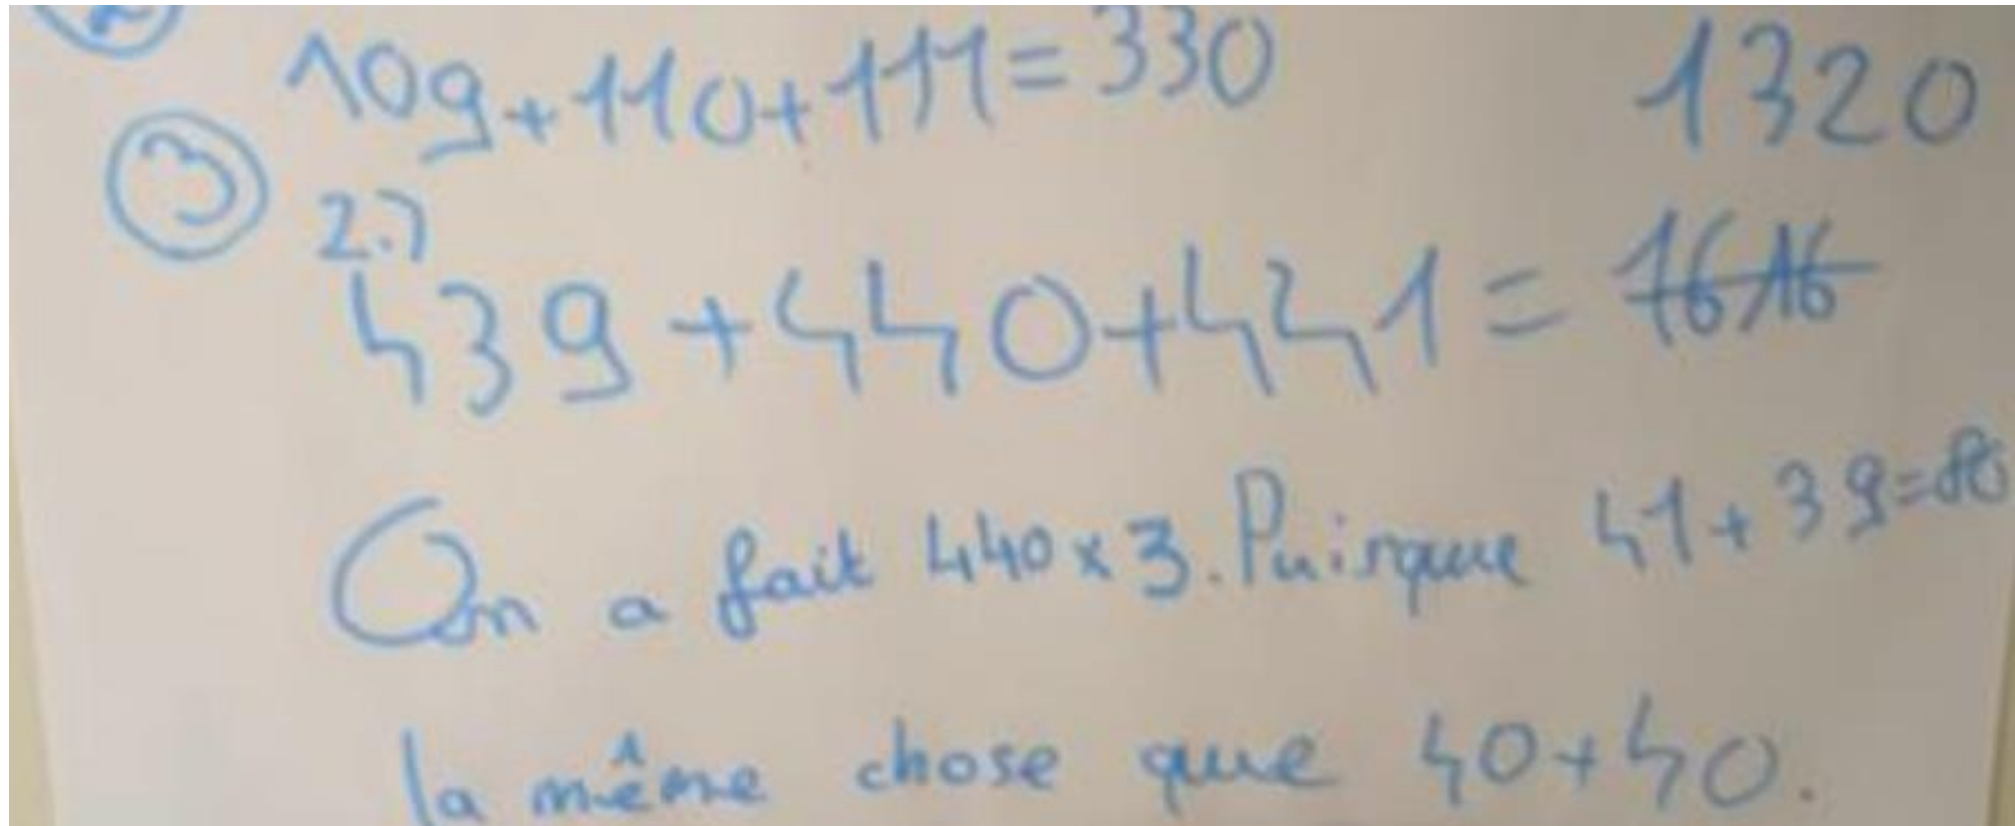 2
109+110+111=330
1320
3
2.)
439+440+441= 1616
On a fait 440x3. Puisque 41+39=80
la même chose que 40+40.